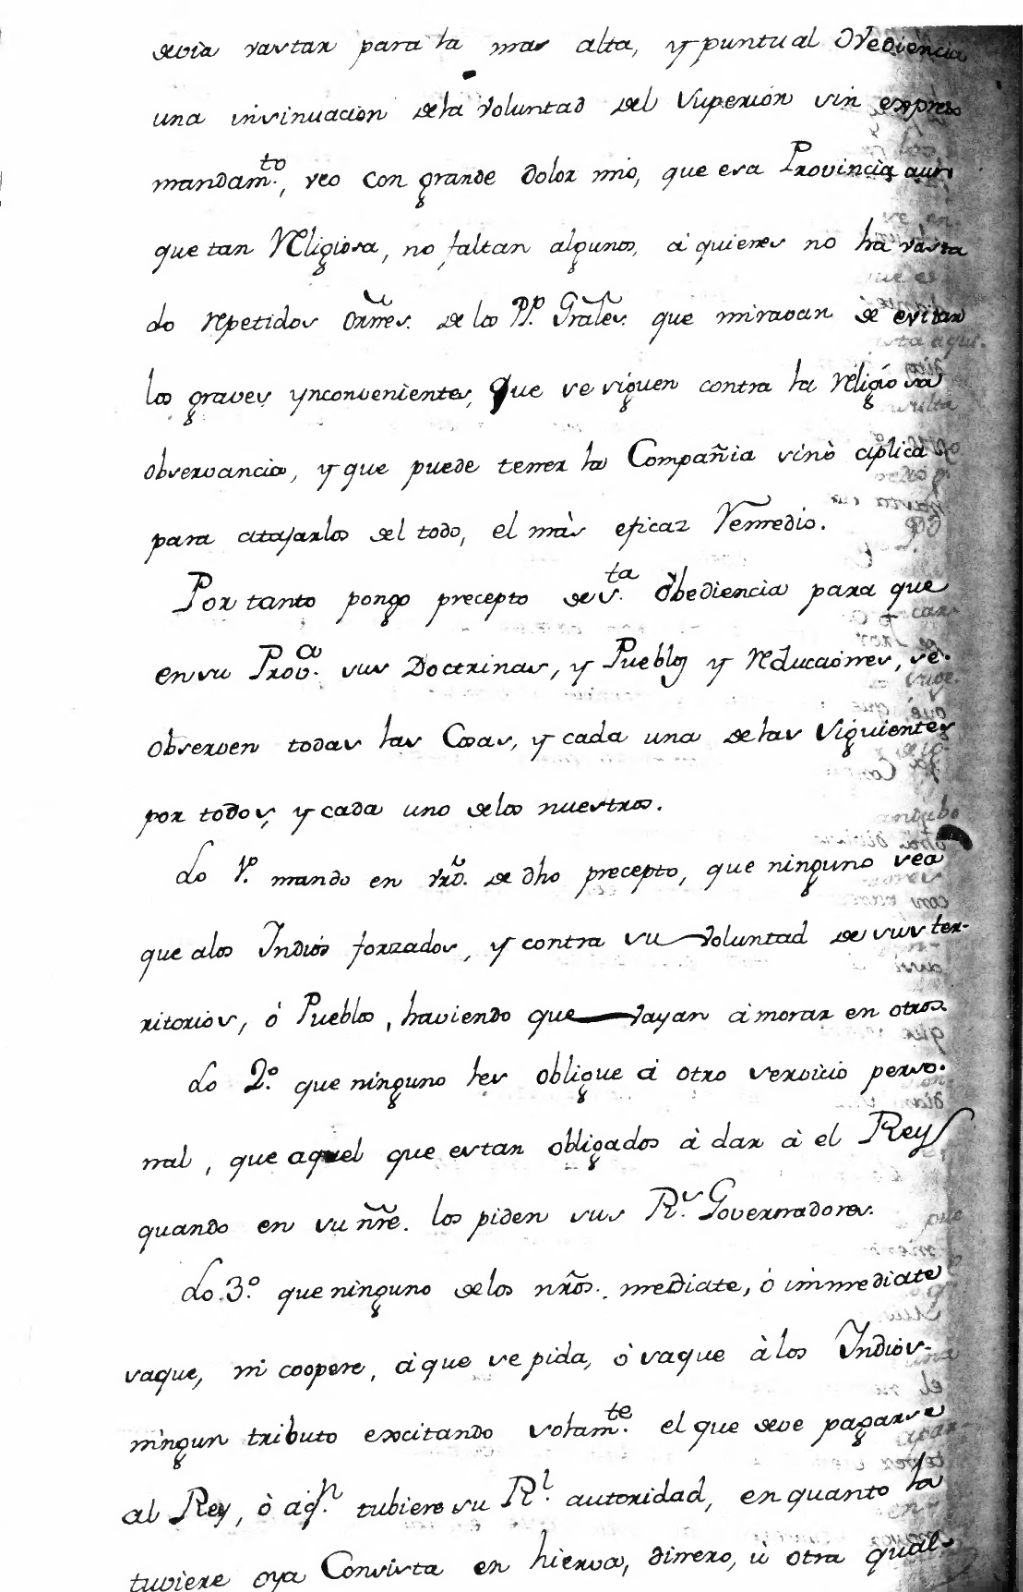 devia vastar para la mas alta, y puntual Ovediencia
una insinuacion dela voluntad del Superior sin expreso
mandam.to, veo con grande dolor mio, que esa Provincia aun
que tan Religiosa, no faltan algunos, a quienes no ha vasta
do repetidos orñes. de los PP.s Grãles. que miravan de evitar
los graves ynconvenientes, que se siguen contra la Religiosa
observancia, y que puede temer la Compañia sinò aplicado
para atajarlos del todo, el màs eficaz Remedio.
Por tanto pongo precepto de S.ta obediencia para que
en su Prov.a sus Doctrinas, y Pueblos y Reducciones, se
observen todas las Cosas, y cada una delas Siguientes
por todos, y cada uno delos nuestros.
Lo 1.º mando en vrd. de dho precepto, que ninguno sea
que alos Indios forzados, y contra su voluntad de sus ter-
ritorios, ó Pueblos, haviendo que vayan á morar en otros.
Lo 2.º que ninguno les obligue á otro servicio perso-
nal, que aquel que estan obligados à dar à el Rey
quando en su ñre. los piden sus R.s Governadores.
Lo 3.º que ninguno delos nr̃os. mediate, ó immediate
saque, ni coopere, á que se pida, ó saque à los Indios-
ningun tributo excitando solam.te el que deve pagarse
al Rey, ò aq.n tubiere su R.l autoridad, en quanto la
tuviere oya Consista en hierva, dinero, ù otra qual-